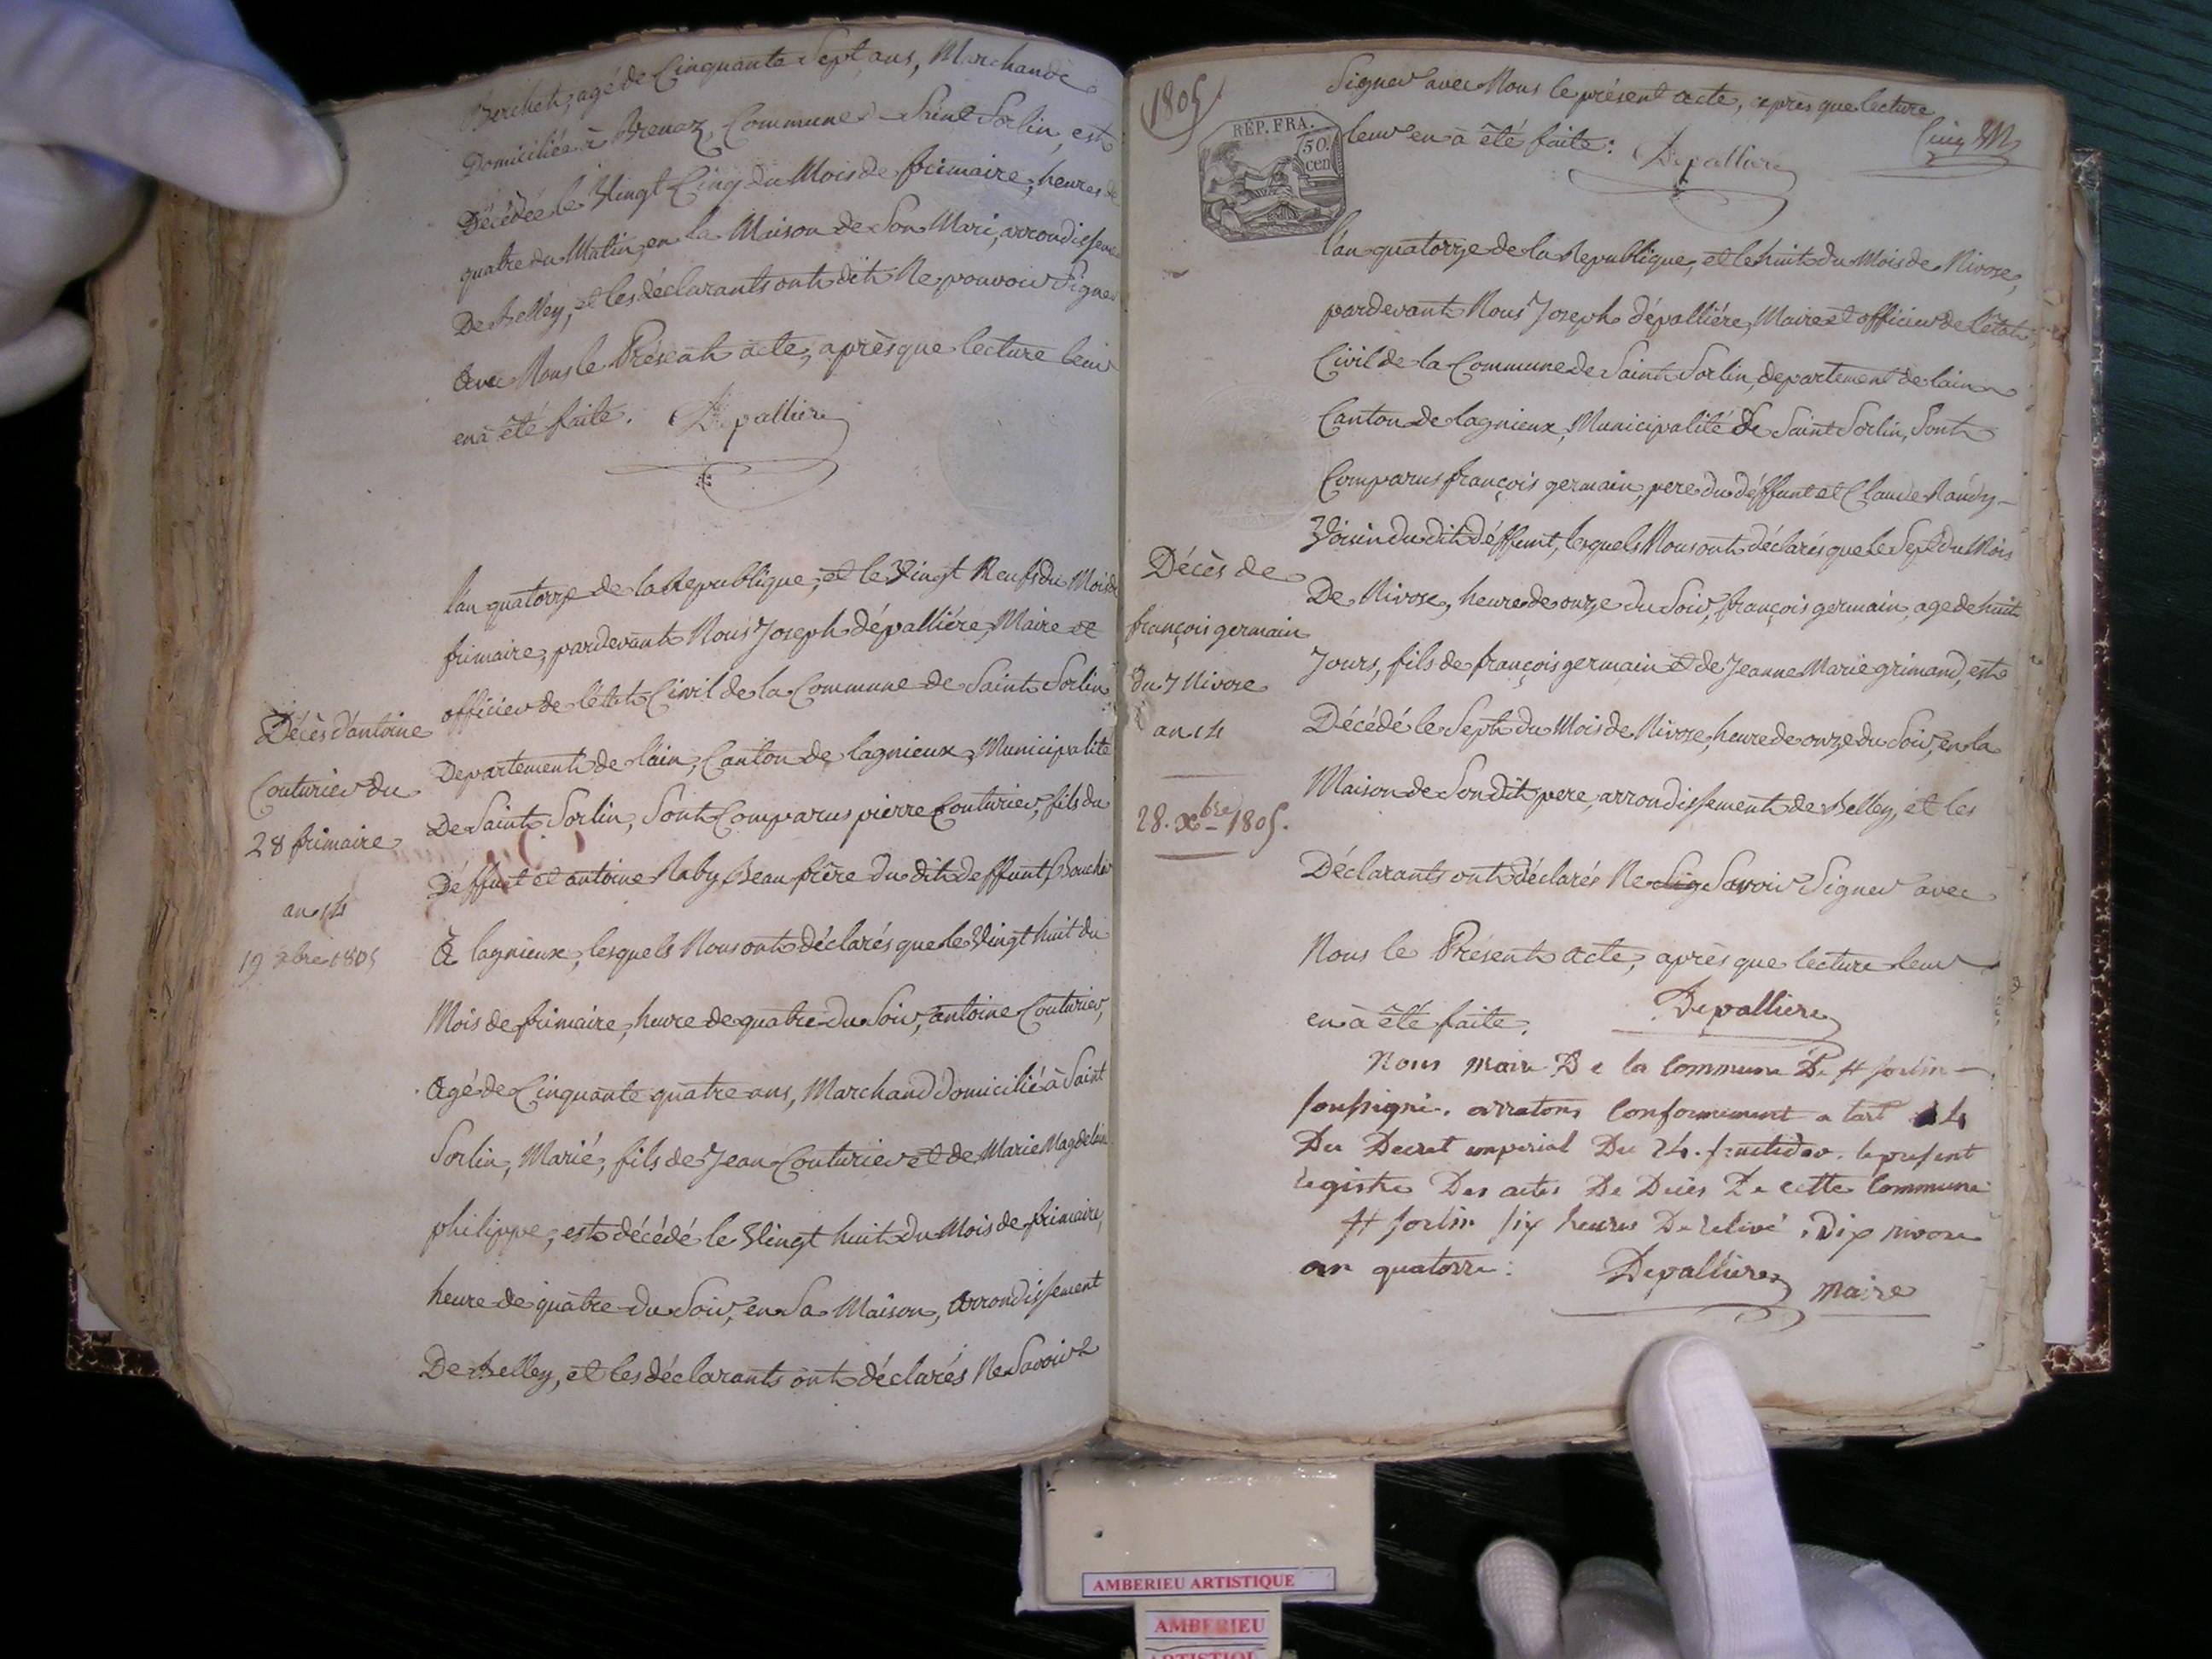 Berchet, agé de Cinquante Sept ans, Marchande
Domiciliée à Brenaz, Commune Saint Sorlin, est
Décédée le Vingt Cinq du Mois de frimaire, heures de
quatre du Matin, en la Maison de Son Mari, arrondissement
De Belley, et les déclarants ont dit Ne pouvoir Signer
Avec Nous le Présent acte, après que lecture leur
en à été faite. Depalliere
l'an quatorze de la Republique, et le Vingt Neuf du Mois de
frimaire, pardevant Nous Joseph dépalliére, Maire et
officier de l'état Civil de la Commune de Saint Sorlin
Décès d'antoine
Couturier du
28 frimaire
an 14
19 xbre 1805
Departement de l'ain, Canton de lagnieux, Municipalité
De Saint Sorlin, Sont Comparus pierre Couturier, fils du
Déffunt et antoine Raby Beau frère du dit deffunt, Boucher
A lagnieux, lesquels Nous ont déclarés que le Vingt huit du
Mois de frimaire, heure de quatre du Soir, antoine Couturier,
Agé de Cinquante quatre ans, Marchand domicilié à Saint
Sorlin, Marié, fils de Jean Couturier et de Marie Magdelaine
philippe, est décédé le Vingt huit du Mois de frimaire,
heure de quatre du Soir, en Sa Maison, Arrondissement
De Belley, et les déclarants ont déclarés Ne Savoir
1805
REP. FRA.
50.
cen
Signer avec Nous le présent acte, après que lecture
leur en à été faite: Depalliere
l'an quatorze de la Republique, et le huit du Mois de Nivose,
pardevant Nous Joseph dépalliére, Maire et officier de l'état
Civil de la Commune de Saint Sorlin, departement de lain
Canton de lagnieux, Municipalité de Saint Sorlin, Sont
Comparus françois germain, pere du déffunt et Claude Nandy
Voisin du dit déffunt, lesquels Nous ont déclarés que le Sept du Mois
Décès de
françois germain
du 7 Nivose
an 14
28. xbre 1805.
De Nivose, heure de onze du Soir, françois germain, age de huit
Jours, fils de françois germain et de Jeanne Marie grimand, est
Décédé le Sept du Mois de Nivose, heure de onze du Soir, en la
Maison de Son dit pere, arrondissement de Belley, et les
Déclarants ont déclarés Ne Sig Savoir Signer avec
Nous le Présent acte, après que lecture leur
en à été faite. Depalliere
Nous maire De la Commune De St Sorlin
soussigné. arratons Conformement a lart 4
Du Decret imperial Du 24. fructidor. le present
registre Des actes De Décès De cette Commune
St Sorlin six heures De relivé. Dix nivose
an quatorze. Depalliere maire
AMBERIEU ARTISTIQUE
AMBERIEU
ARTISTIQUE